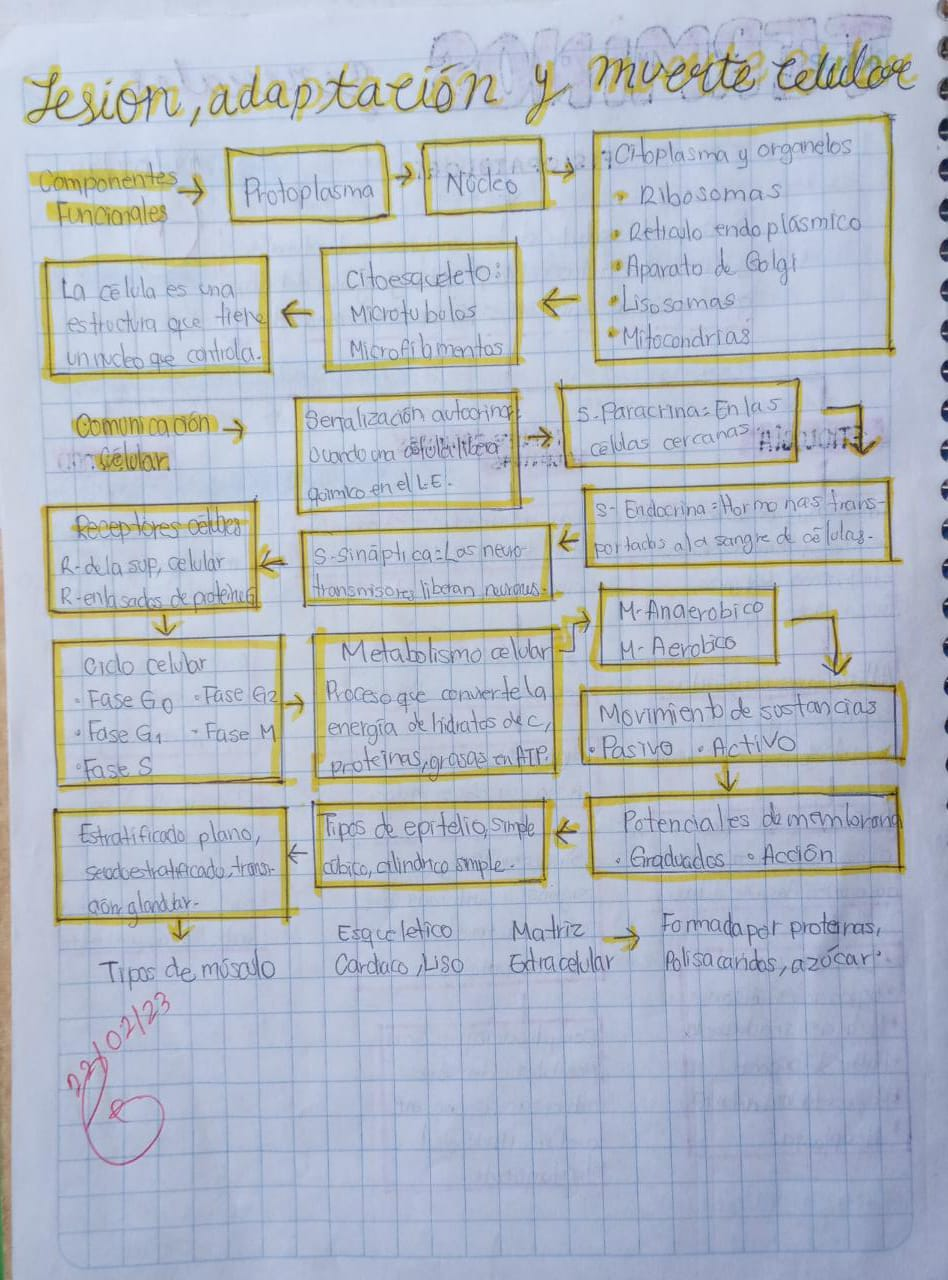 Lesion, adaptación y muerte celular
Componentes
Funcionales
Protoplasma
Núcleo
Citoplasma y organelos
• Ribosomas
• Retículo endoplásmico
• Aparato de Golgi
• Lisosomas
• Mitocondrias
Citoesqueleto:
Microtubulos
Microfilamentos
La célula es una
estructura que tiene
un nucleo que controla.
Comunicación
Celular
Señalización autocrina
Cuando una célula libera
químico en el L.E.
S-Paracrina=En las
células cercanas
S-Endocrina=Hormonas trans-
portadas a la sangre de células.
S-Sináptica=Los neuro-
transmisores liberan
Receptores
R-de la sup, celular
R-enlasados de proteínas
Ciclo celular
• Fase G0 • Fase G2
• Fase G1 • Fase M
• Fase S
Metabolismo celular
Proceso que convierte la
energía de hidratos de C,
proteínas, grasas en ATP.
M-Anaerobico
M-Aerobico
Movimiento de sustancias
• Pasivo • Activo
Potenciales de membrana
• Graduados • Acción
Tipos de epitelio, simple
cúbico, cilíndrico simple.
Estratificado plano,
seudoestratificado, transi-
ción glandular.
Tipos de músculo
Esquelético
Cardiaco, Liso
Matriz
Extracelular
Formada por proteínas,
Polisacaridos, azúcar.
22/02/23